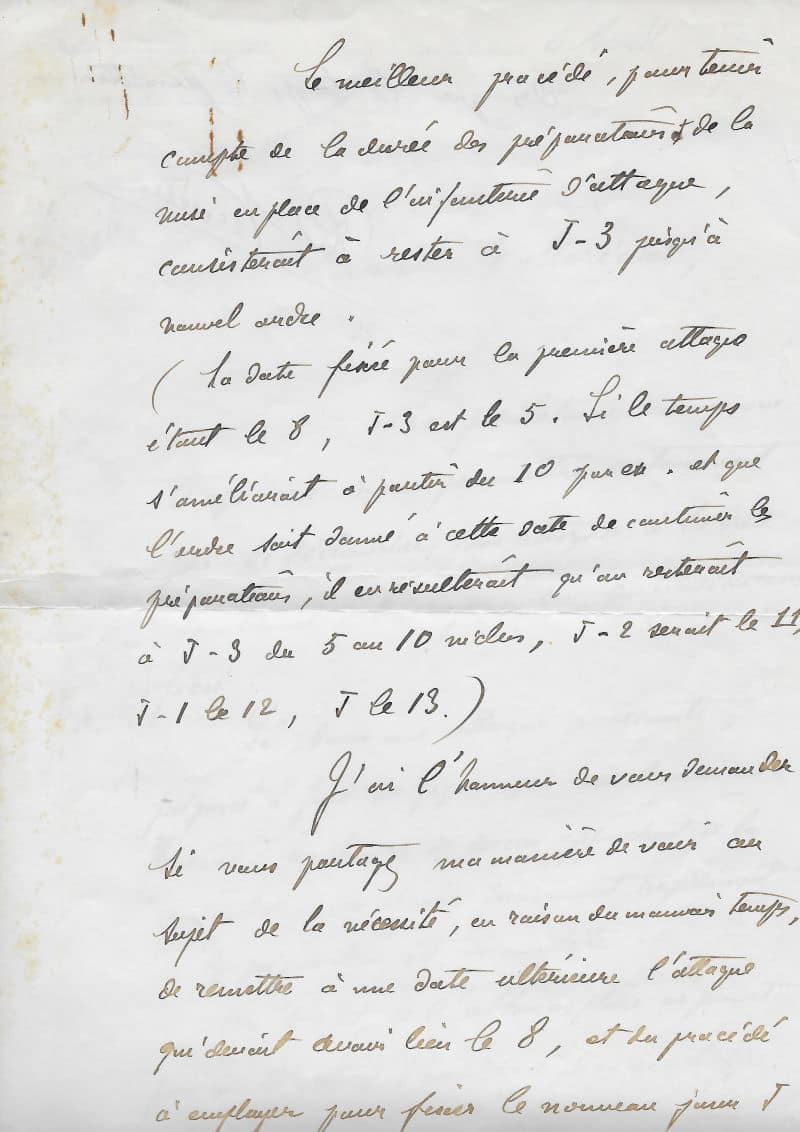 Le meilleur procédé, pour tenir
compte de la durée des préparations et de la
mise en place de l'infanterie d'attaque,
consisterait à rester à J-3 jusqu'à
nouvel ordre.
(La date fixée pour la première attaque
étant le 8, J-3 est le 5. Si le temps
s'améliorait à partir du 10 par ex. et que
l'ordre soit donné à cette date de continuer les
préparations, il en résulterait qu'on resterait
à J-3 du 5 au 10 inclus, J-2 serait le 11,
J-1 le 12, J le 13.)
J'ai l'honneur de vous demander
si vous partagez ma manière de voir au
sujet de la nécessité, en raison du mauvais temps,
de remettre à une date ultérieure l'attaque
qui devait avoir lieu le 8, et du procédé
à employer pour fixer le nouveau jour J